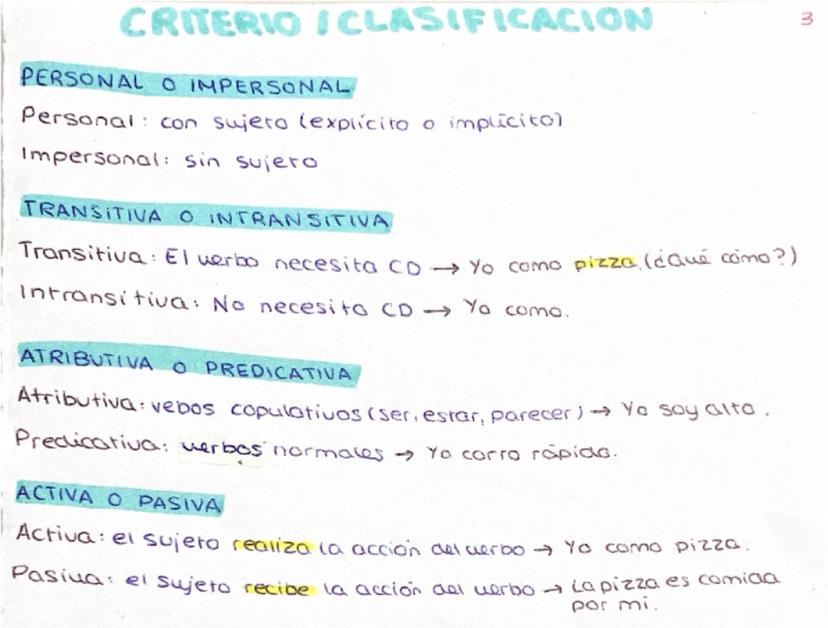 CRITERIO / CLASIFICACION
3
PERSONAL O IMPERSONAL
Personal: con sujeto (explícito o implícito)
Impersonal: sin sujeto
TRANSITIVA O INTRANSITIVA
Transitiva: El verbo necesita CD → Yo como pizza. (¿Qué como?)
Intransitiva: No necesita CD → Yo como.
ATRIBUTIVA O PREDICATIVA
Atributiva: vebos copulativos (ser, estar, parecer) → Yo soy alto.
Predicativa: verbos normales → Yo corro rápido.
ACTIVA O PASIVA
Activa: el sujeto realiza la acción del verbo → Yo como pizza.
Pasiva: el sujeto recibe la acción del verbo → La pizza es comida
por mi.